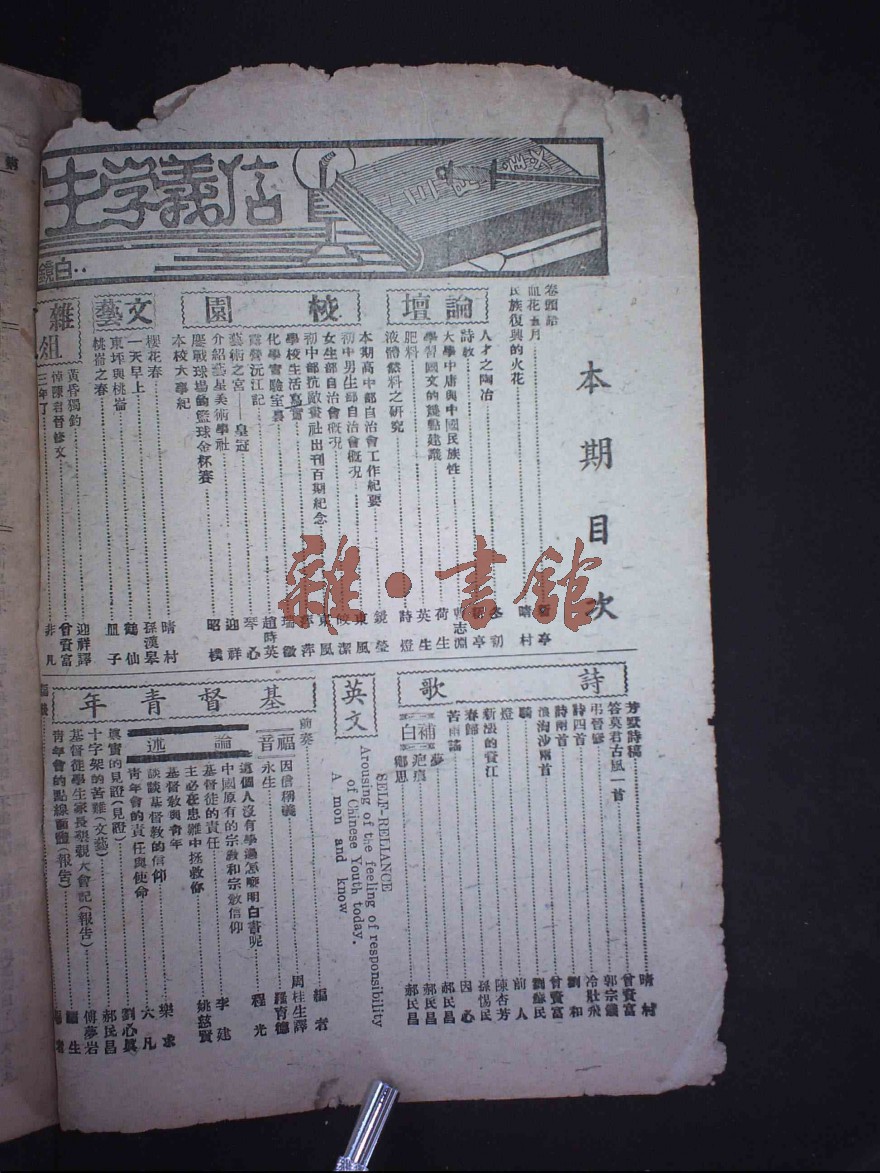 信義學生
本期目次
卷頭語
血花五月
民族復興的火花……晴村
論壇
人才之陶冶
詩教
大學中庸與中國民族性
學習國文的幾點建議……荷生
肥料……英生
液體燃料之研究……詩燈
校園
本期高中部自治會工作紀要……鏡瑩
初中男生部自治會概况……東風
女生部自治會概况……皎潔
初中部抗敵畫社出刊百期紀念……東風
學校生活寫實……萍萍
化學實驗室裏……瑞徵
露營沅江記……趙時英
藝術之宮——皇冠……琴心
介紹藝星美術學社……迎祥
鏖戰球場的籃球金杯賽
本校大事紀……昭樸
文藝
櫻花春……晴村
一天早上……孫漢皋
東坪與桃崙……鶴仙
桃崙之春……凪子
雜俎
黃昏獨釣……迎祥譯
悼陳君晉修文……曾賚富
三年了……非凡
詩歌
芳墅詩稿……晴村
答莫君古風一首……曾賚富
弔晉修……郭宗鑑
詩四首……冷壯飛
詩兩首……劉和
浪淘沙兩首……曾賚富
鷗……劉蘇民
燈……前人
新漲的資江……陳杏芳
春歸……孫惕民
苦雨謠……因心
補白
夢……郝民昌
疤痕……郝民昌
鄉思……郝民昌
英文
SELF-RELIANCE
Arousing of the feeling of responsibility
of Chinese Youth today.
A mon and know
基督青年
前奏……編者
福音
因信稱義……周桂生譯
永生……段育德
論述
這個人沒有學過怎麼明白書呢……程光
中國原有的宗教和宗敎信仰
基督徒的責任……李建
主必在患難中拯救你……姚慈賢
基督敎與青年
談談基督教的信仰……樂求
青年會的責任與使命……六凡
眞實的見證(見證)……劉心眞
十字架的苦難(文藝)……郝民昌
基督徒學生家長懇親大會記(報告)……傅夢岩
青年會的點線面體(報告)
雜·書館